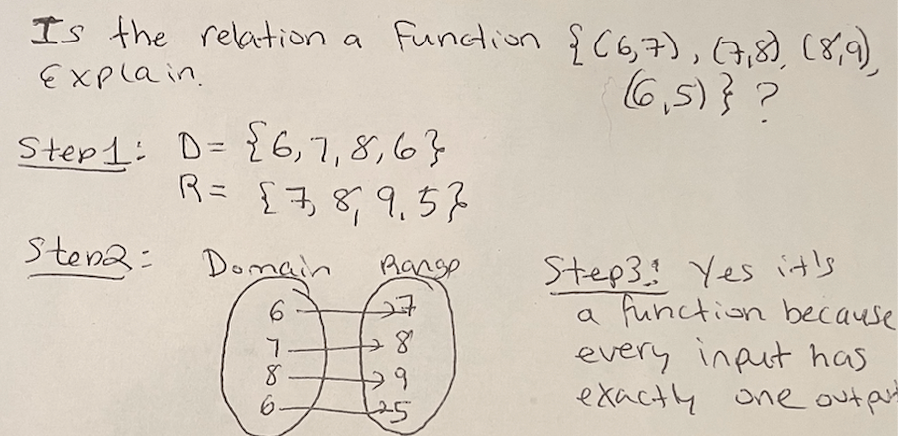 Is the relation a function {(6,7), (7,8), (8,9),
Explain.
(6,5)} ?
Step1: D= {6,7,8,6}
R= {7,8,9,5}
Step2: Domain Range
6 7
7 8
8 9
6 5
Step3: Yes it's
a function because
every input has
exactly one output